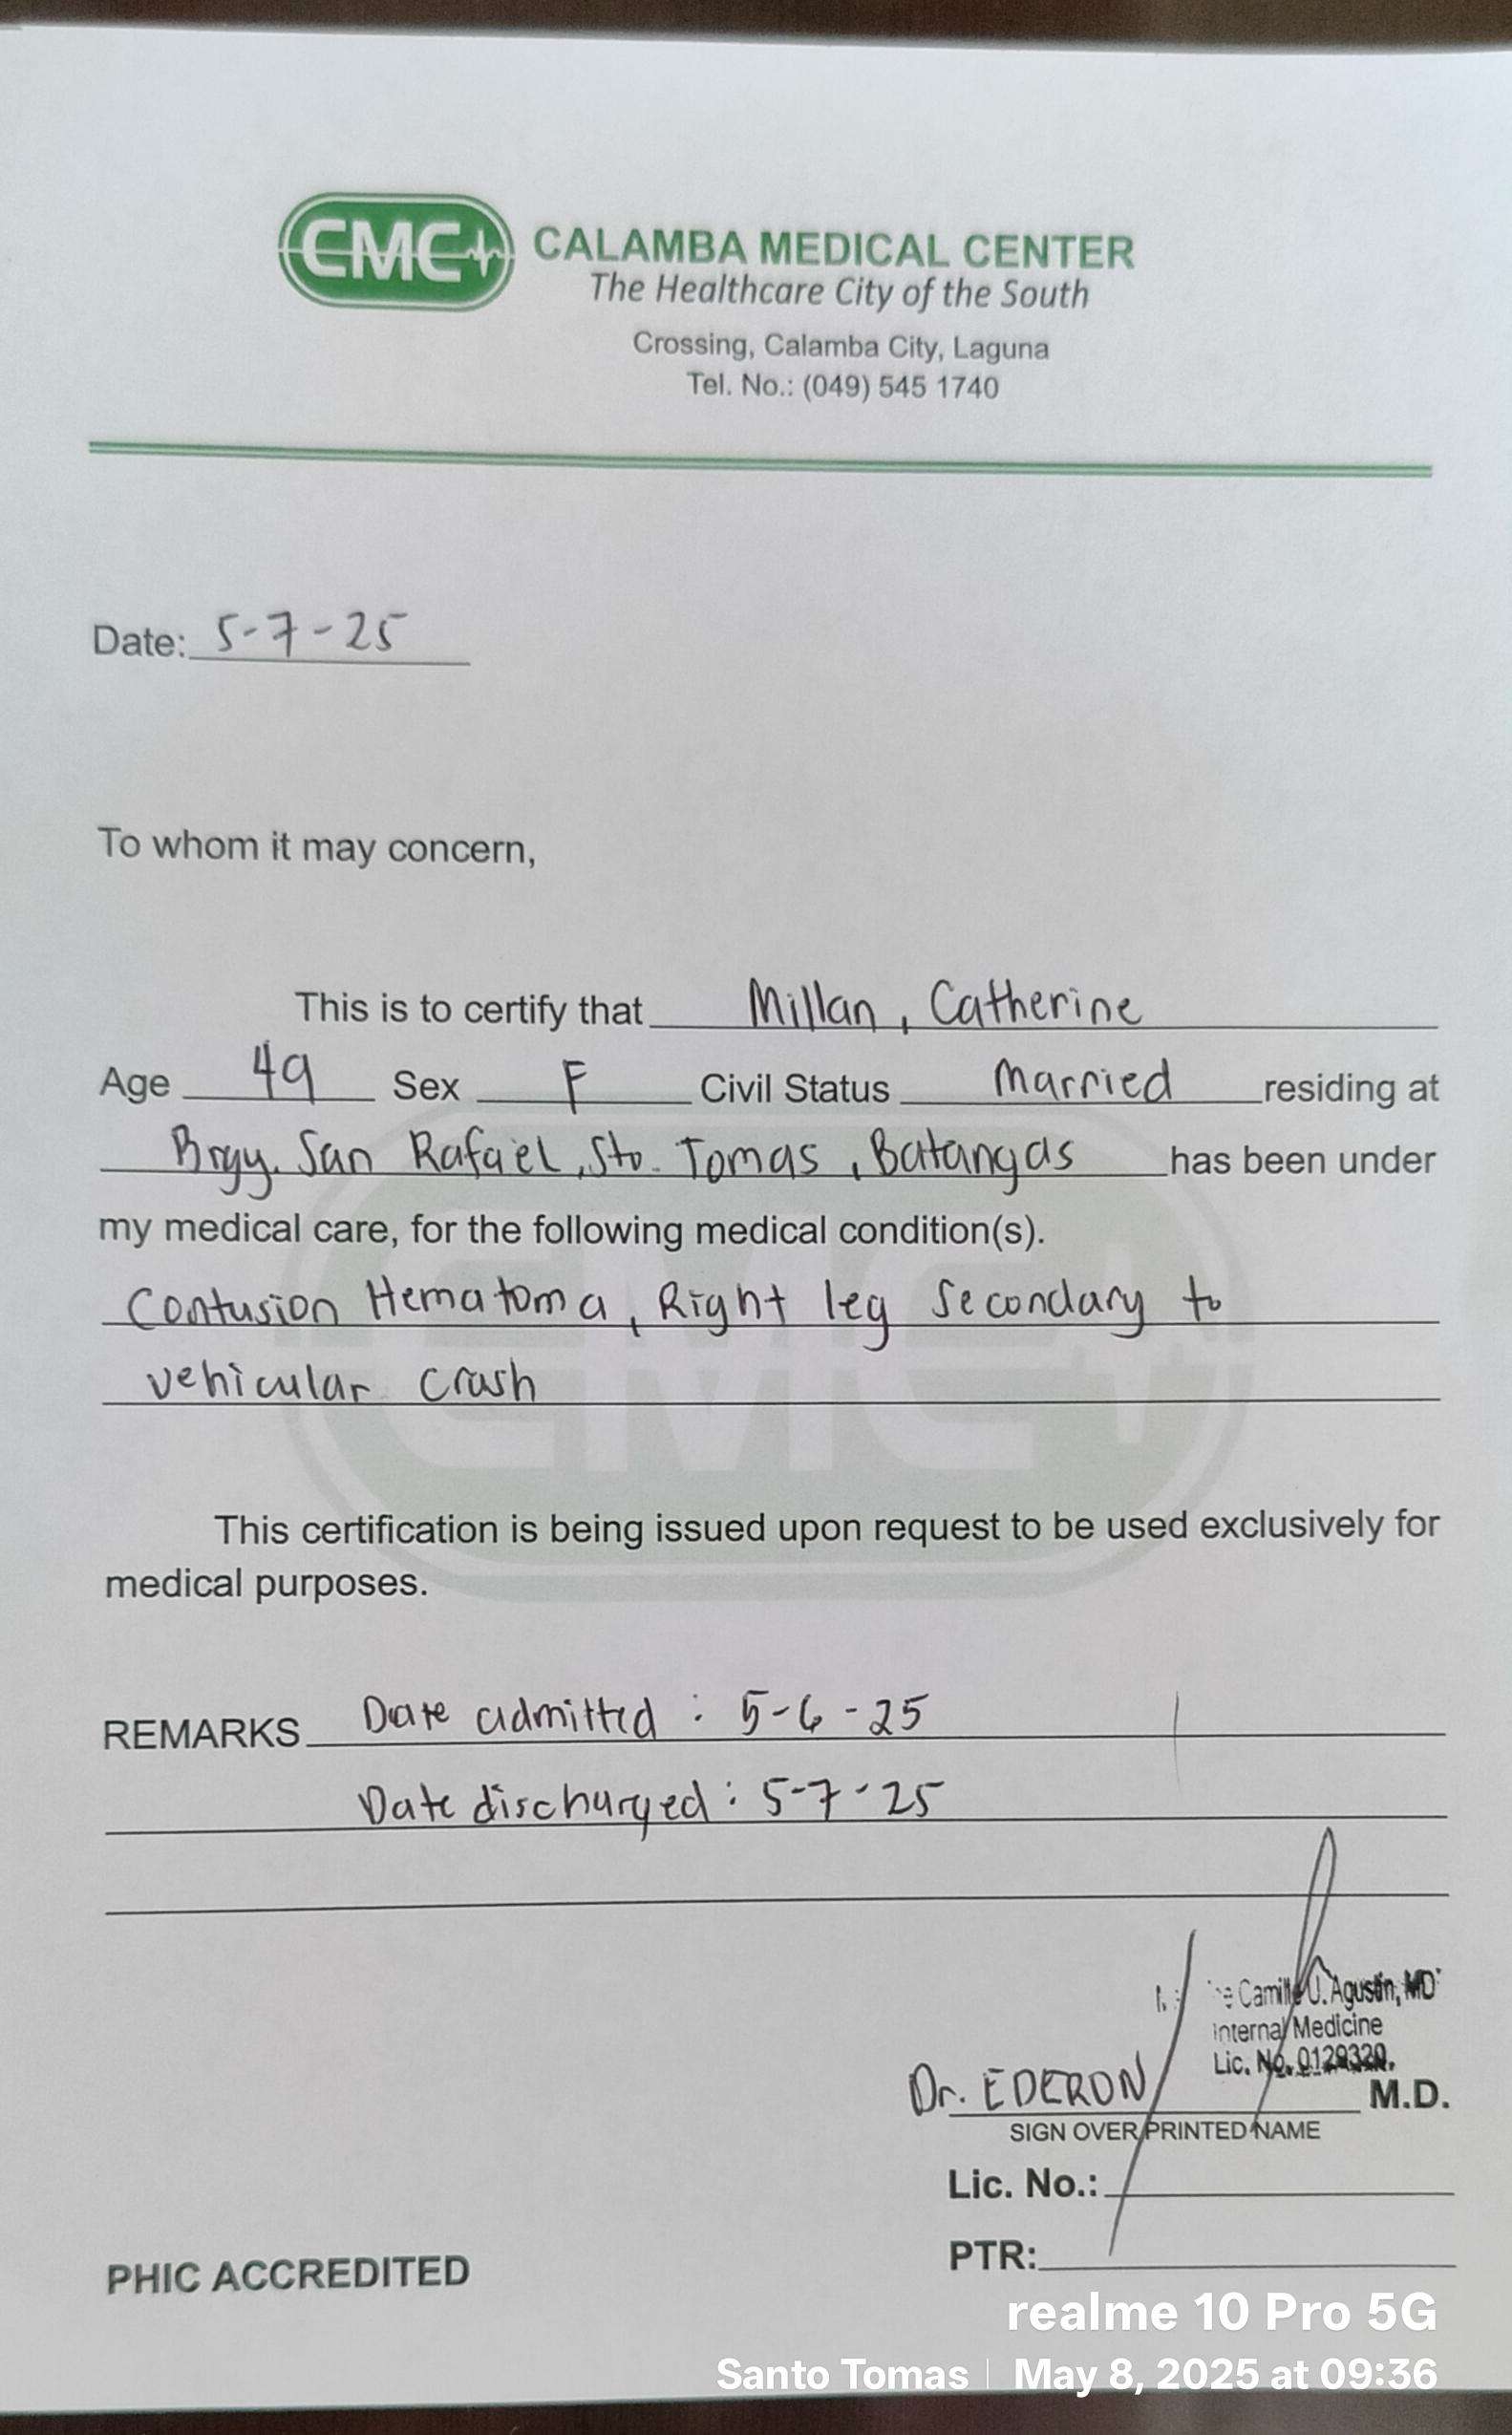 CMC
CALAMBA MEDICAL CENTER
The Healthcare City of the South
Crossing, Calamba City, Laguna
Tel. No.: (049) 545 1740
Date: 5-7-25
To whom it may concern,
This is to certify that Millan, Catherine
Age 49 Sex F Civil Status Married residing at
Brgy. San Rafael, Sto. Tomas, Batangas has been under
my medical care, for the following medical condition(s).
Contusion Hematoma, Right leg secondary to
vehicular crash
This certification is being issued upon request to be used exclusively for
medical purposes.
REMARKS Date admitted : 5-6-25
Date discharged : 5-7-25
Camille U. Agustin, MD
Internal Medicine
Lic. No. 0129320.
Dr. EDERON M.D.
SIGN OVER PRINTED NAME
Lic. No.:
PTR:
PHIC ACCREDITED
realme 10 Pro 5G
Santo Tomas | May 8, 2025 at 09:36